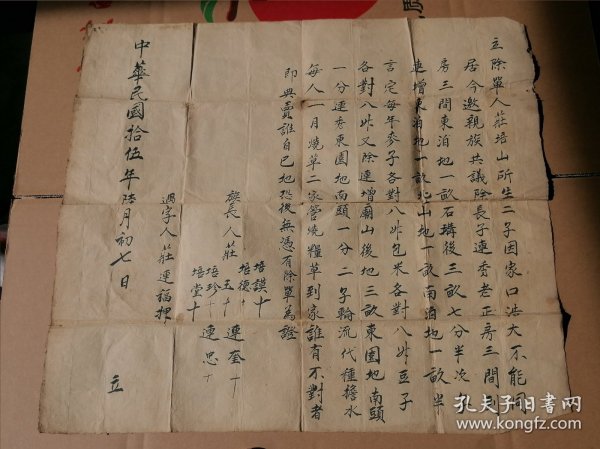 立除單人莊培山所生二子因家口浩大不能同
居今邀親族共議除長子連秀老正房三間到
房三間東泊地一畝石溝後三畝七分半次子
連增東泊地一畝北山地一畝南泊地一畝半
言定每年麥子各對八升包米各對八升豆子
各對八升又除連增廟山後地三畝東園地南頭
一分連秀東園地南頭一分二子輪流代種擔水
每人一月燒草二家管燒糧草到家誰有不對者
即典賣誰自己地恐後無憑有除單為證
培謨十
培德十
族長人莊 玉十 連奎十
培珍十 連忠十
培堂十
過字人莊連福押
中華民國拾伍年陸月初七日
立
孔夫子旧书网
book.kongfz.com